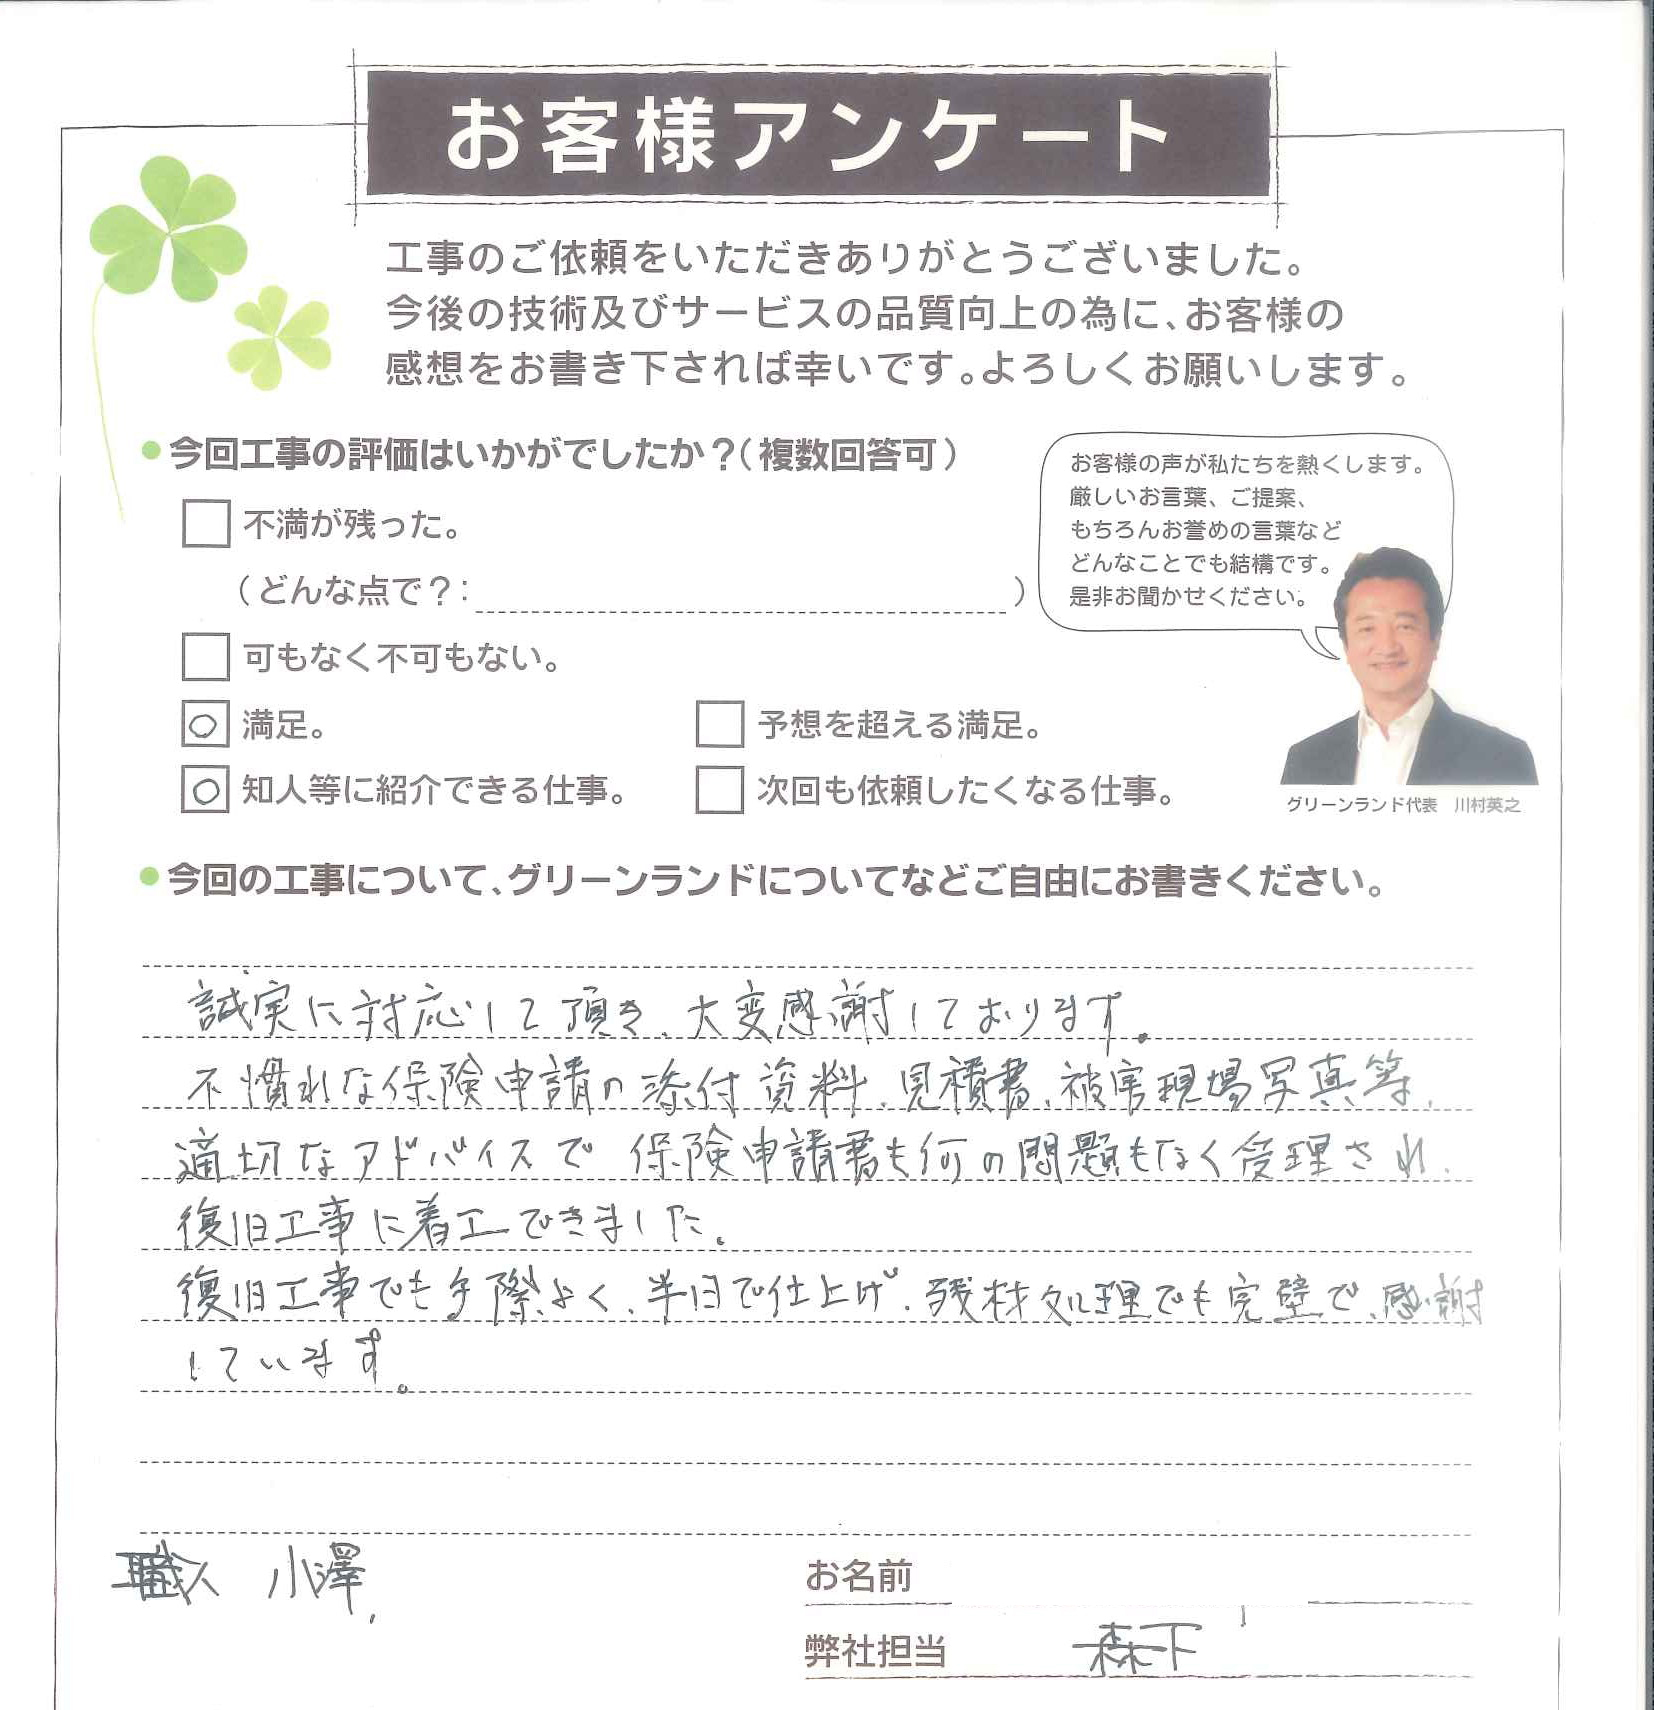 お客様アンケート
工事のご依頼をいただきありがとうございました。
今後の技術及びサービスの品質向上の為に、お客様の
感想をお書き下されば幸いです。よろしくお願いします。
今回工事の評価はいかがでしたか？（複数回答可）
不満が残った。
（どんな点で？：　）
可もなく不可もない。
満足。
予想を超える満足。
知人等に紹介できる仕事。
次回も依頼したくなる仕事。
お客様の声が私たちを熱くします。
厳しいお言葉、ご提案、
もちろんお誉めの言葉など
どんなことでも結構です。
是非お聞かせください。
グリーンランド代表　川村英之
今回の工事について、グリーンランドについてなどご自由にお書きください。
誠実に対応して頂き、大変感謝しております。
不慣れな保険申請の添付資料、見積書、被害現場写真等、
適切なアドバイスで保険申請書も何の問題もなく受理され、
復旧工事に着工できました。
復旧工事でも手際よく、半日で仕上げ、残材処理でも完璧で、感謝
しています。
職人　小澤
お名前
弊社担当　森下